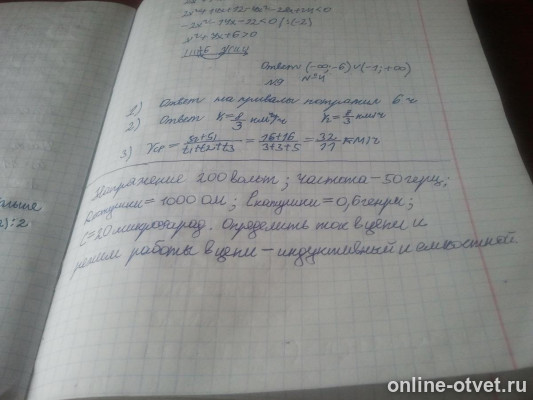 -2x²-14x-22<0 /:(-2)
x²+7x+6>0
Ответ (-∞; -6)∪(-1; +∞)
1) Ответ на привалы потратил 6 ч
2) Ответ
3) Vср = S1+S1/t1+t2+t3 = 16+16/3+3+5 = 32/11 км/ч
Напряжение 200 вольт; частота - 50 герц;
Rкатушки = 1000 Ом; Lкатушки = 0,6 генри;
C = 20 микрофарад. Определить ток в цепи и
режим работы в цепи - индуктивный и емкостной
online-otvet.ru